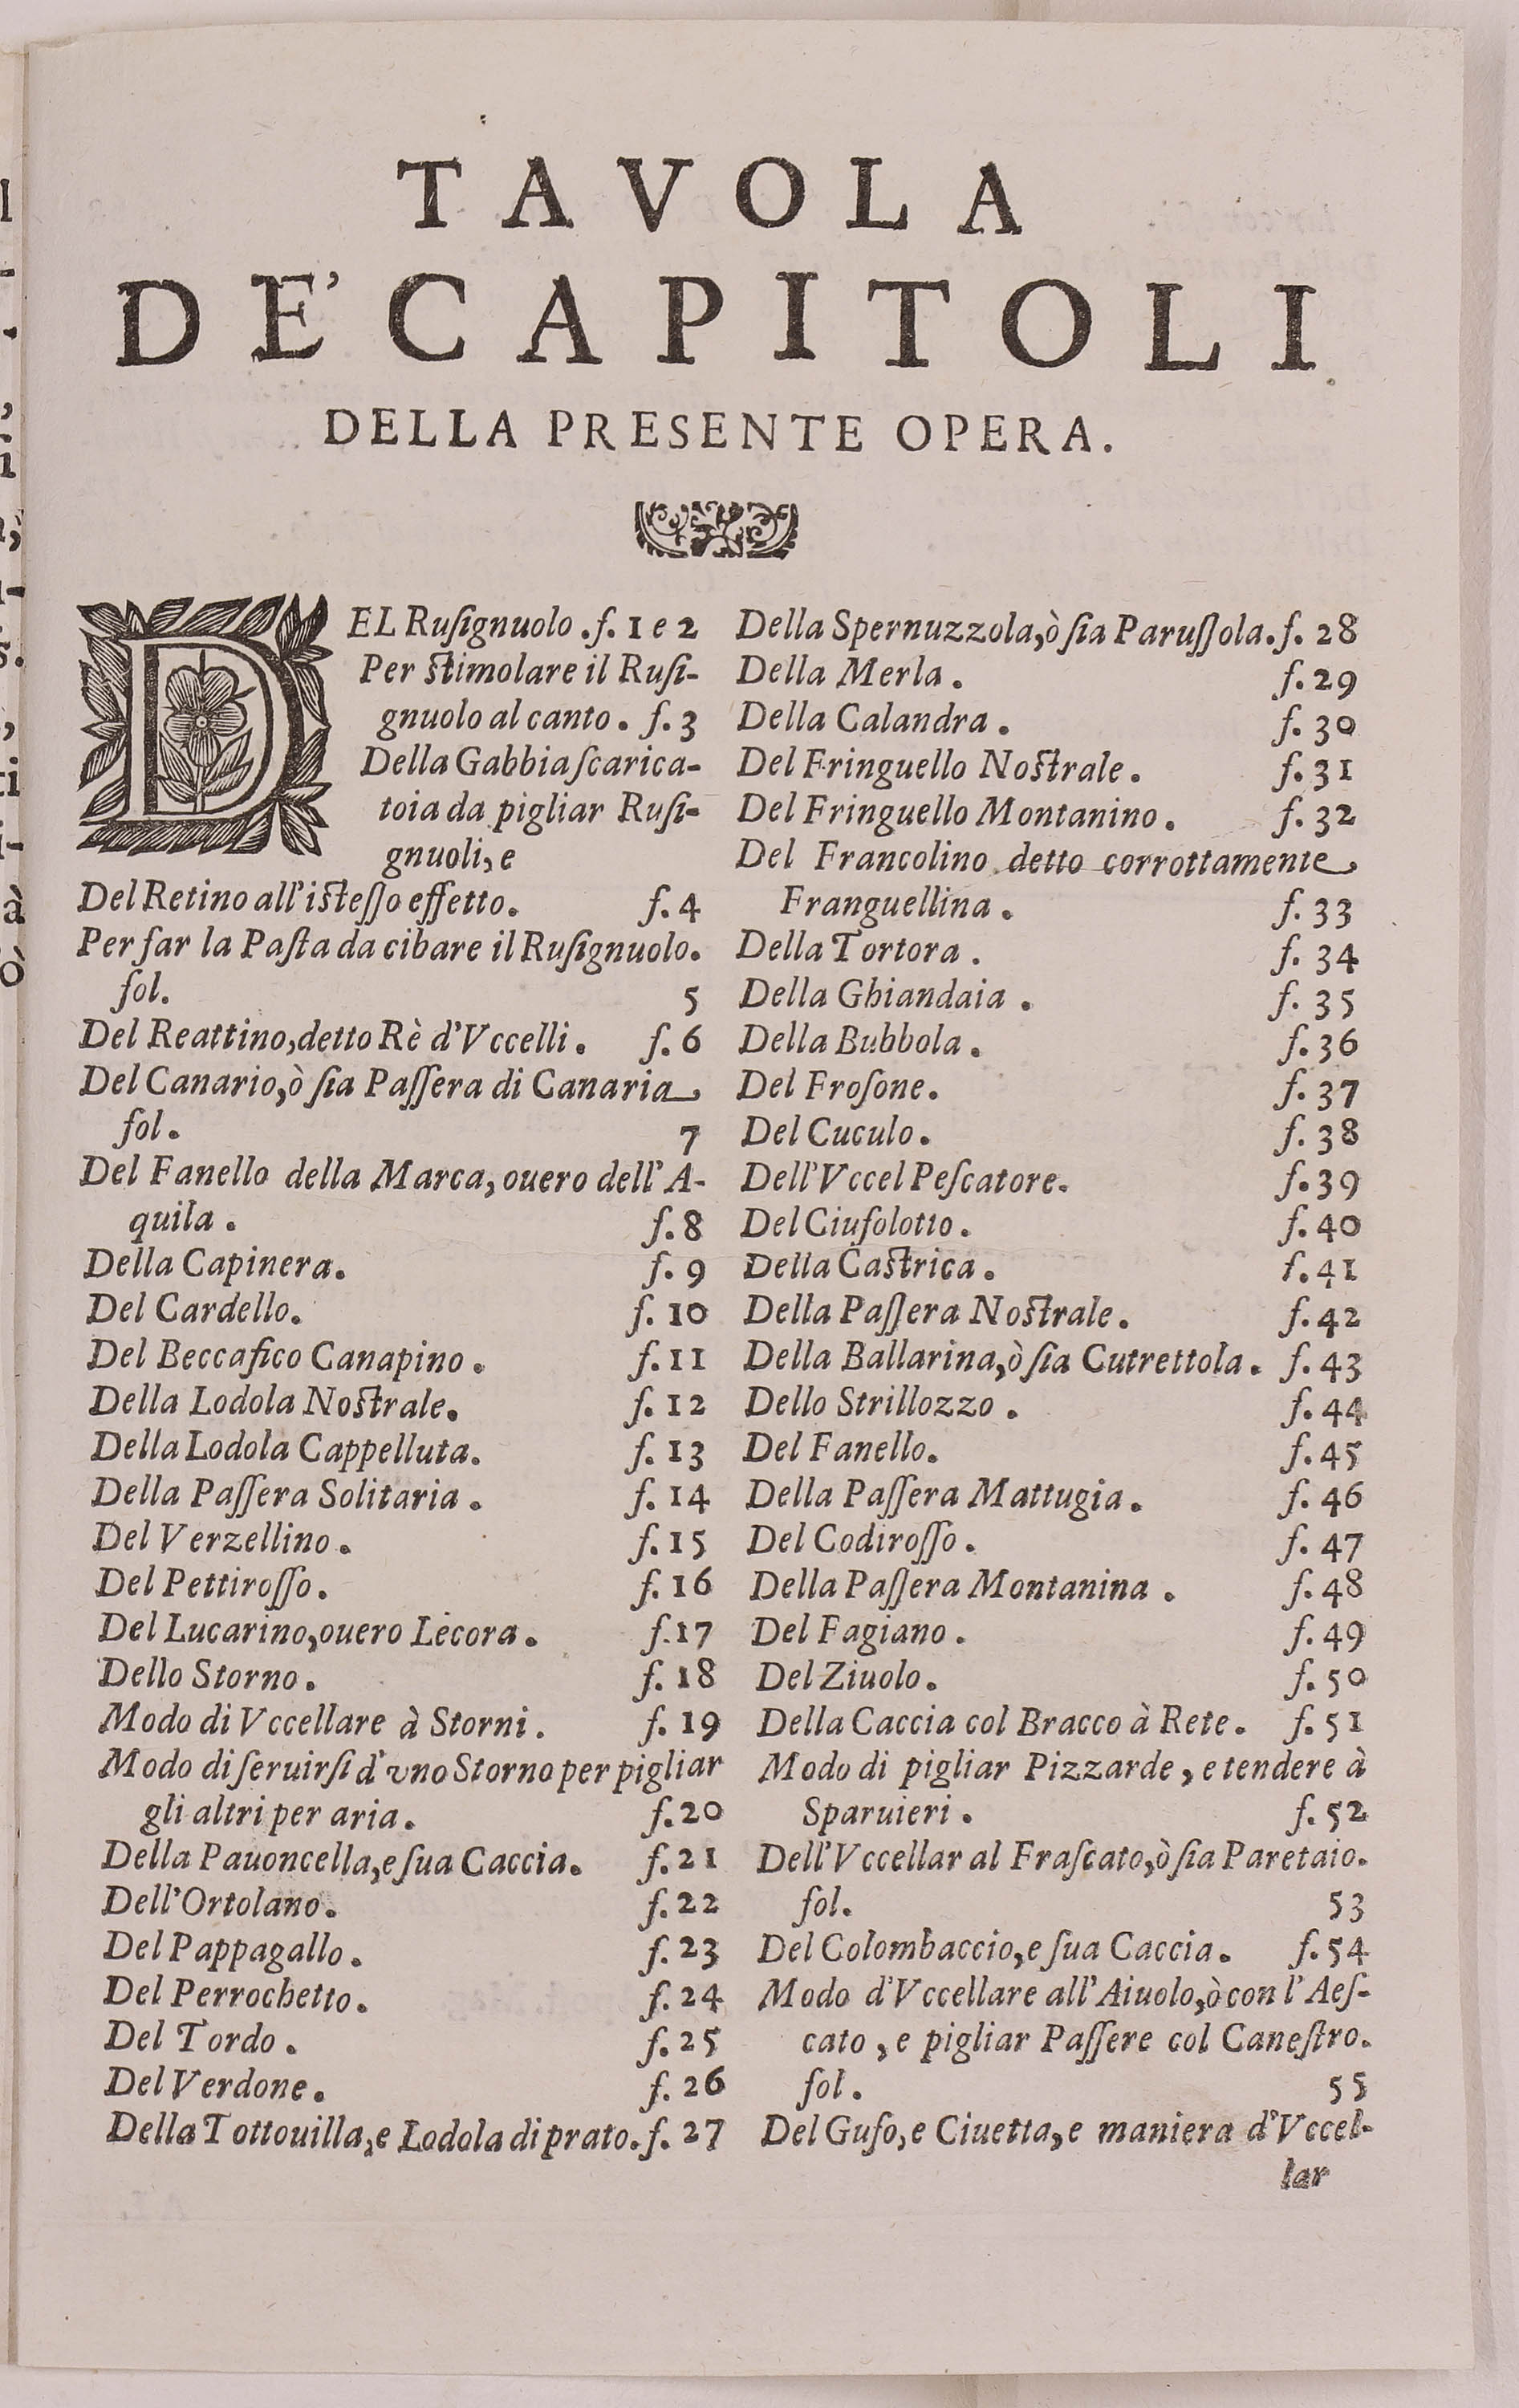 TAVOLA
DE' CAPITOLI
DELLA PRESENTE OPERA.
DEL Ruſignuolo . f. 1 e 2
Per ſtimolare il Ruſi-
gnuolo al canto . f. 3
Della Gabbia ſcarica-
toia da pigliar Ruſi-
gnuoli, e
Del Retino all'iſteſſo effetto. f. 4
Per far la Paſta da cibare il Ruſignuolo.
fol. 5
Del Reattino, detto Rè d'Vccelli . f. 6
Del Canario, ò ſia Paſſera di Canaria
fol . 7
Del Fanello della Marca, ouero dell' A-
quila . f. 8
Della Capinera. f. 9
Del Cardello. f. 10
Del Beccafico Canapino . f. 11
Della Lodola Noſtrale. f. 12
Della Lodola Cappelluta. f. 13
Della Paſſera Solitaria . f. 14
Del Verzellino . f. 15
Del Pettiroſſo. f. 16
Del Lucarino, ouero Lecora . f. 17
Dello Storno . f. 18
Modo di Vccellare à Storni . f. 19
Modo di ſeruirſi d'vno Storno per pigliar
gli altri per aria . f. 20
Della Pauoncella, e ſua Caccia. f. 21
Dell'Ortolano. f. 22
Del Pappagallo . f. 23
Del Perrochetto. f. 24
Del Tordo . f. 25
Del Verdone. f. 26
Della Tottouilla, e Lodola di prato. f. 27
Della Spernuzzola, ò ſia Paruſſola. f. 28
Della Merla . f. 29
Della Calandra . f. 30
Del Fringuello Noſtrale . f. 31
Del Fringuello Montanino . f. 32
Del Francolino detto corrottamente
Franguellina . f. 33
Della Tortora . f. 34
Della Ghiandaia . f. 35
Della Bubbola . f. 36
Del Froſone. f. 37
Del Cuculo . f. 38
Dell'Vccel Peſcatore. f. 39
Del Ciufolotto . f. 40
Della Caſtrica . f. 41
Della Paſſera Noſtrale . f. 42
Della Ballarina, ò ſia Cutrettola . f. 43
Dello Strillozzo . f. 44
Del Fanello. f. 45
Della Paſſera Mattugia . f. 46
Del Codiroſſo . f. 47
Della Paſſera Montanina . f. 48
Del Fagiano . f. 49
Del Ziuolo . f. 50
Della Caccia col Bracco à Rete . f. 51
Modo di pigliar Pizzarde , e tendere à
Sparuieri . f. 52
Dell'Vccellar al Fraſcato, ò ſia Paretaio.
fol. 53
Del Colombaccio, e ſua Caccia . f. 54
Modo d'Vccellare all'Aiuolo, ò con l'Aeſ-
cato , e pigliar Paſſere col Caneſtro.
fol . 55
Del Gufo, e Ciuetta, e maniera d'Vccel-
lar